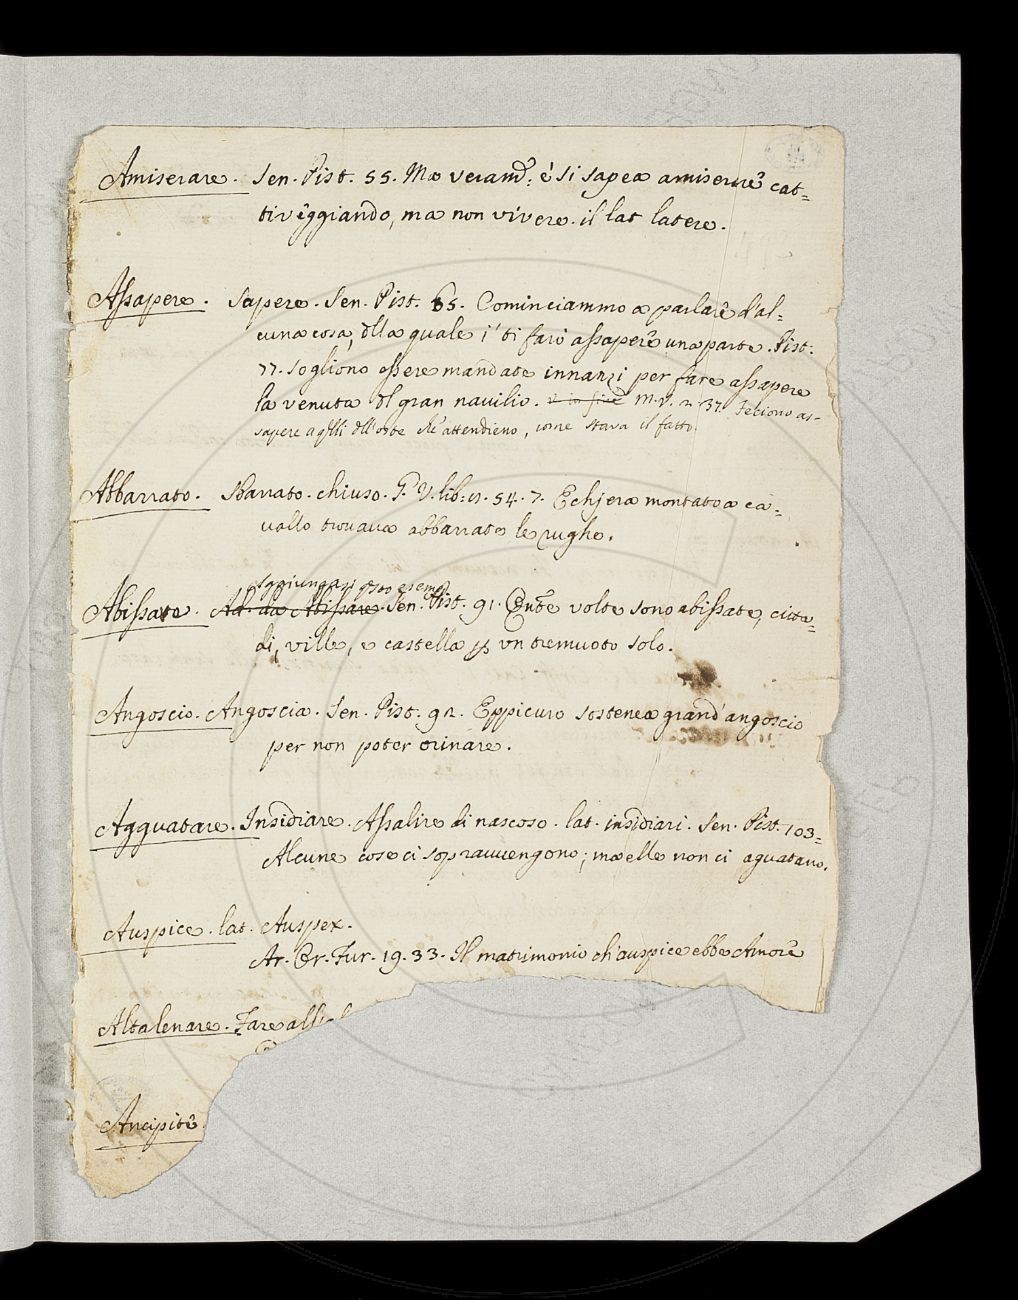 Amiserare. Sen. Pist. 55. Ma veram.te e' si sapea amiserare cat=
tiveggiando, ma non vivere. il lat latere.
Assapere. Sapere. Sen. Pist. 65. Cominciammo a parlare d'al=
cuna cosa, dlla quale i' ti farò assapere una parte. Pist.
77. Sogliono essere mandate innanzi per fare assapere
la venuta dl gran navilio. M. V. 2. 37. Feciono as=
sapere a qlli dll'oste che attendieno, come stava il fatto.
Abbarrato. Sbarrato. chiuso. G. V. lib. 12. 54. 7. E chi era montato a ca=
vallo trovava abbarrate le rughe.
Aggiungasi qsto esemp.
Abissato. Ad. da Abissare. Sen. Pist. 91. Cente volte sono abissate, citta=
di, ville, e castella p un tremuoto solo.
Angoscio. Angoscia. Sen. Pist. 92. Eppicuro sostenea grand'angoscio
per non poter orinare.
Agguatare. Insidiare. Assalire di nascoso. lat. insidiari. Sen. Pist. 103=
Alcune cose ci sopravvengono; ma elle non ci aguatano.
Auspice. lat. Auspex.
Ar. Or. Fur. 19. 33. Il matrimonio ch'auspice ebbe Amore
Altalenare. Fare all'
Ancipite.